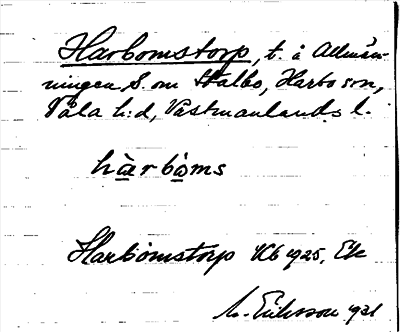 Harbomstorp, t. å Allmän-
ningen S. om Stalbo, Harbo sn,
Våla h:d, Västmanlands l.
hàrbòms
Harbomstorp Kb 1925, Ek
M. Eriksson 1931